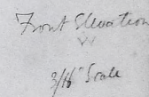 Front Elevation
3/16" Scale